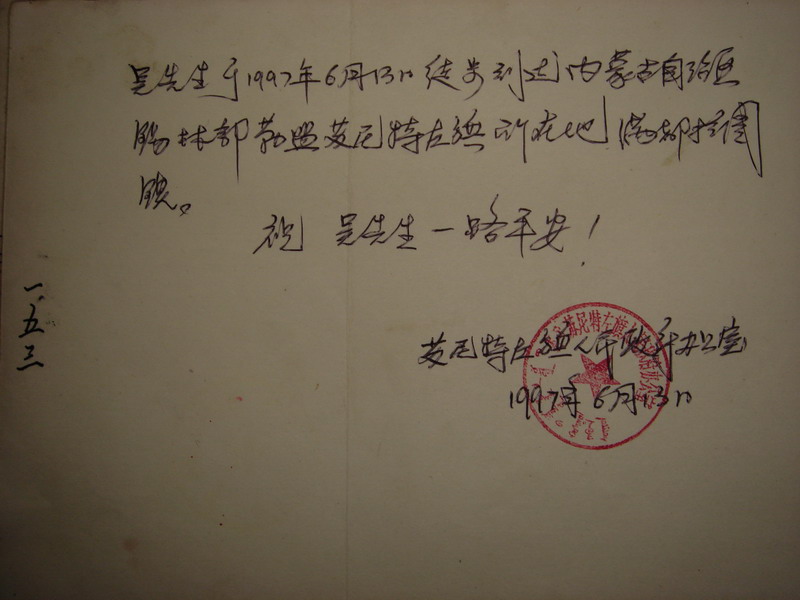 吴先生于1997年6月13日徒步到达内蒙古自治区
锡林郭勒盟苏尼特左旗所在地满都拉图
镇。
祝 吴先生一路平安!
苏尼特左旗人民政府办公室
1997年6月13日
一.五三
苏尼特左旗